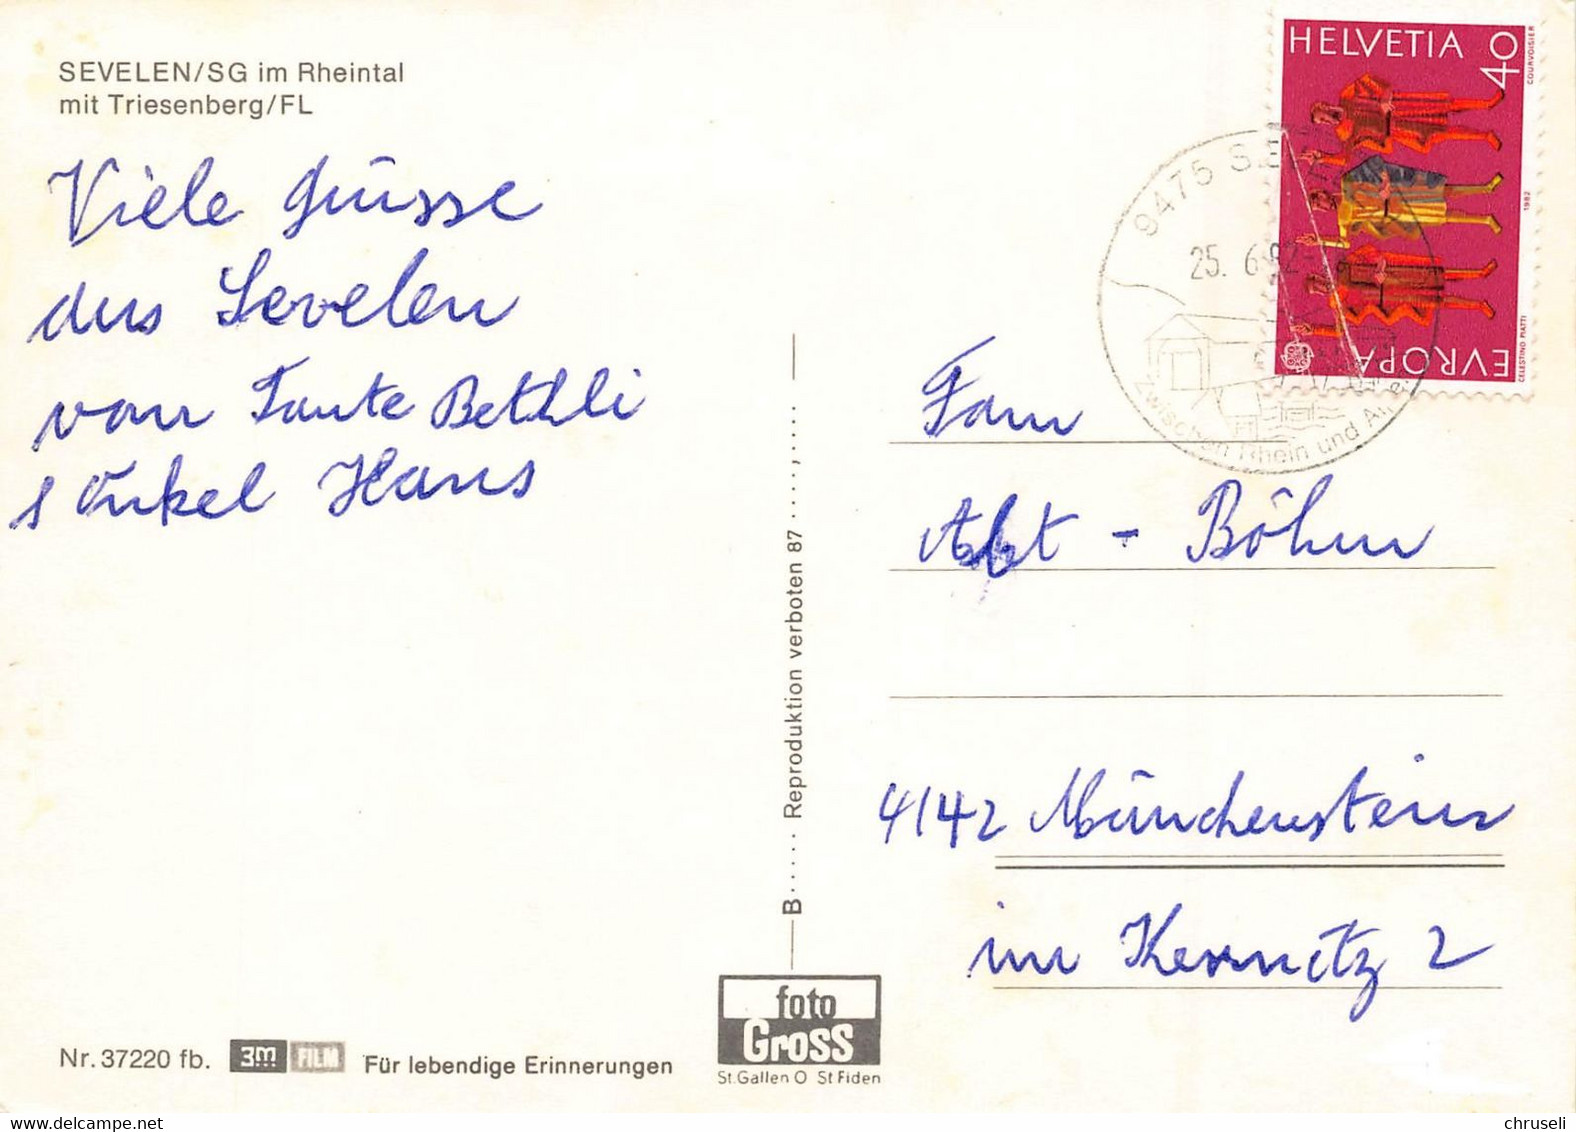 SEVELEN/SG im Rheintal
mit Triesenberg/FL
Viele Grüsse
aus Sevelen
von Tante Bethli
& Onkel Hans
Nr. 37220 fb. 3M FILM Für lebendige Erinnerungen
B..... Reproduktion verboten 87.....,....
foto
Gross
St.Gallen O St Fiden
HELVETIA 40
COURVOISIER
1982
CELESTINO PIATTI
EVROPA
9475 SE
25. 6.
Zwischen Rhein und
Fam
Abt - Böhm
4142 Münchenstein
im 2
chruseli